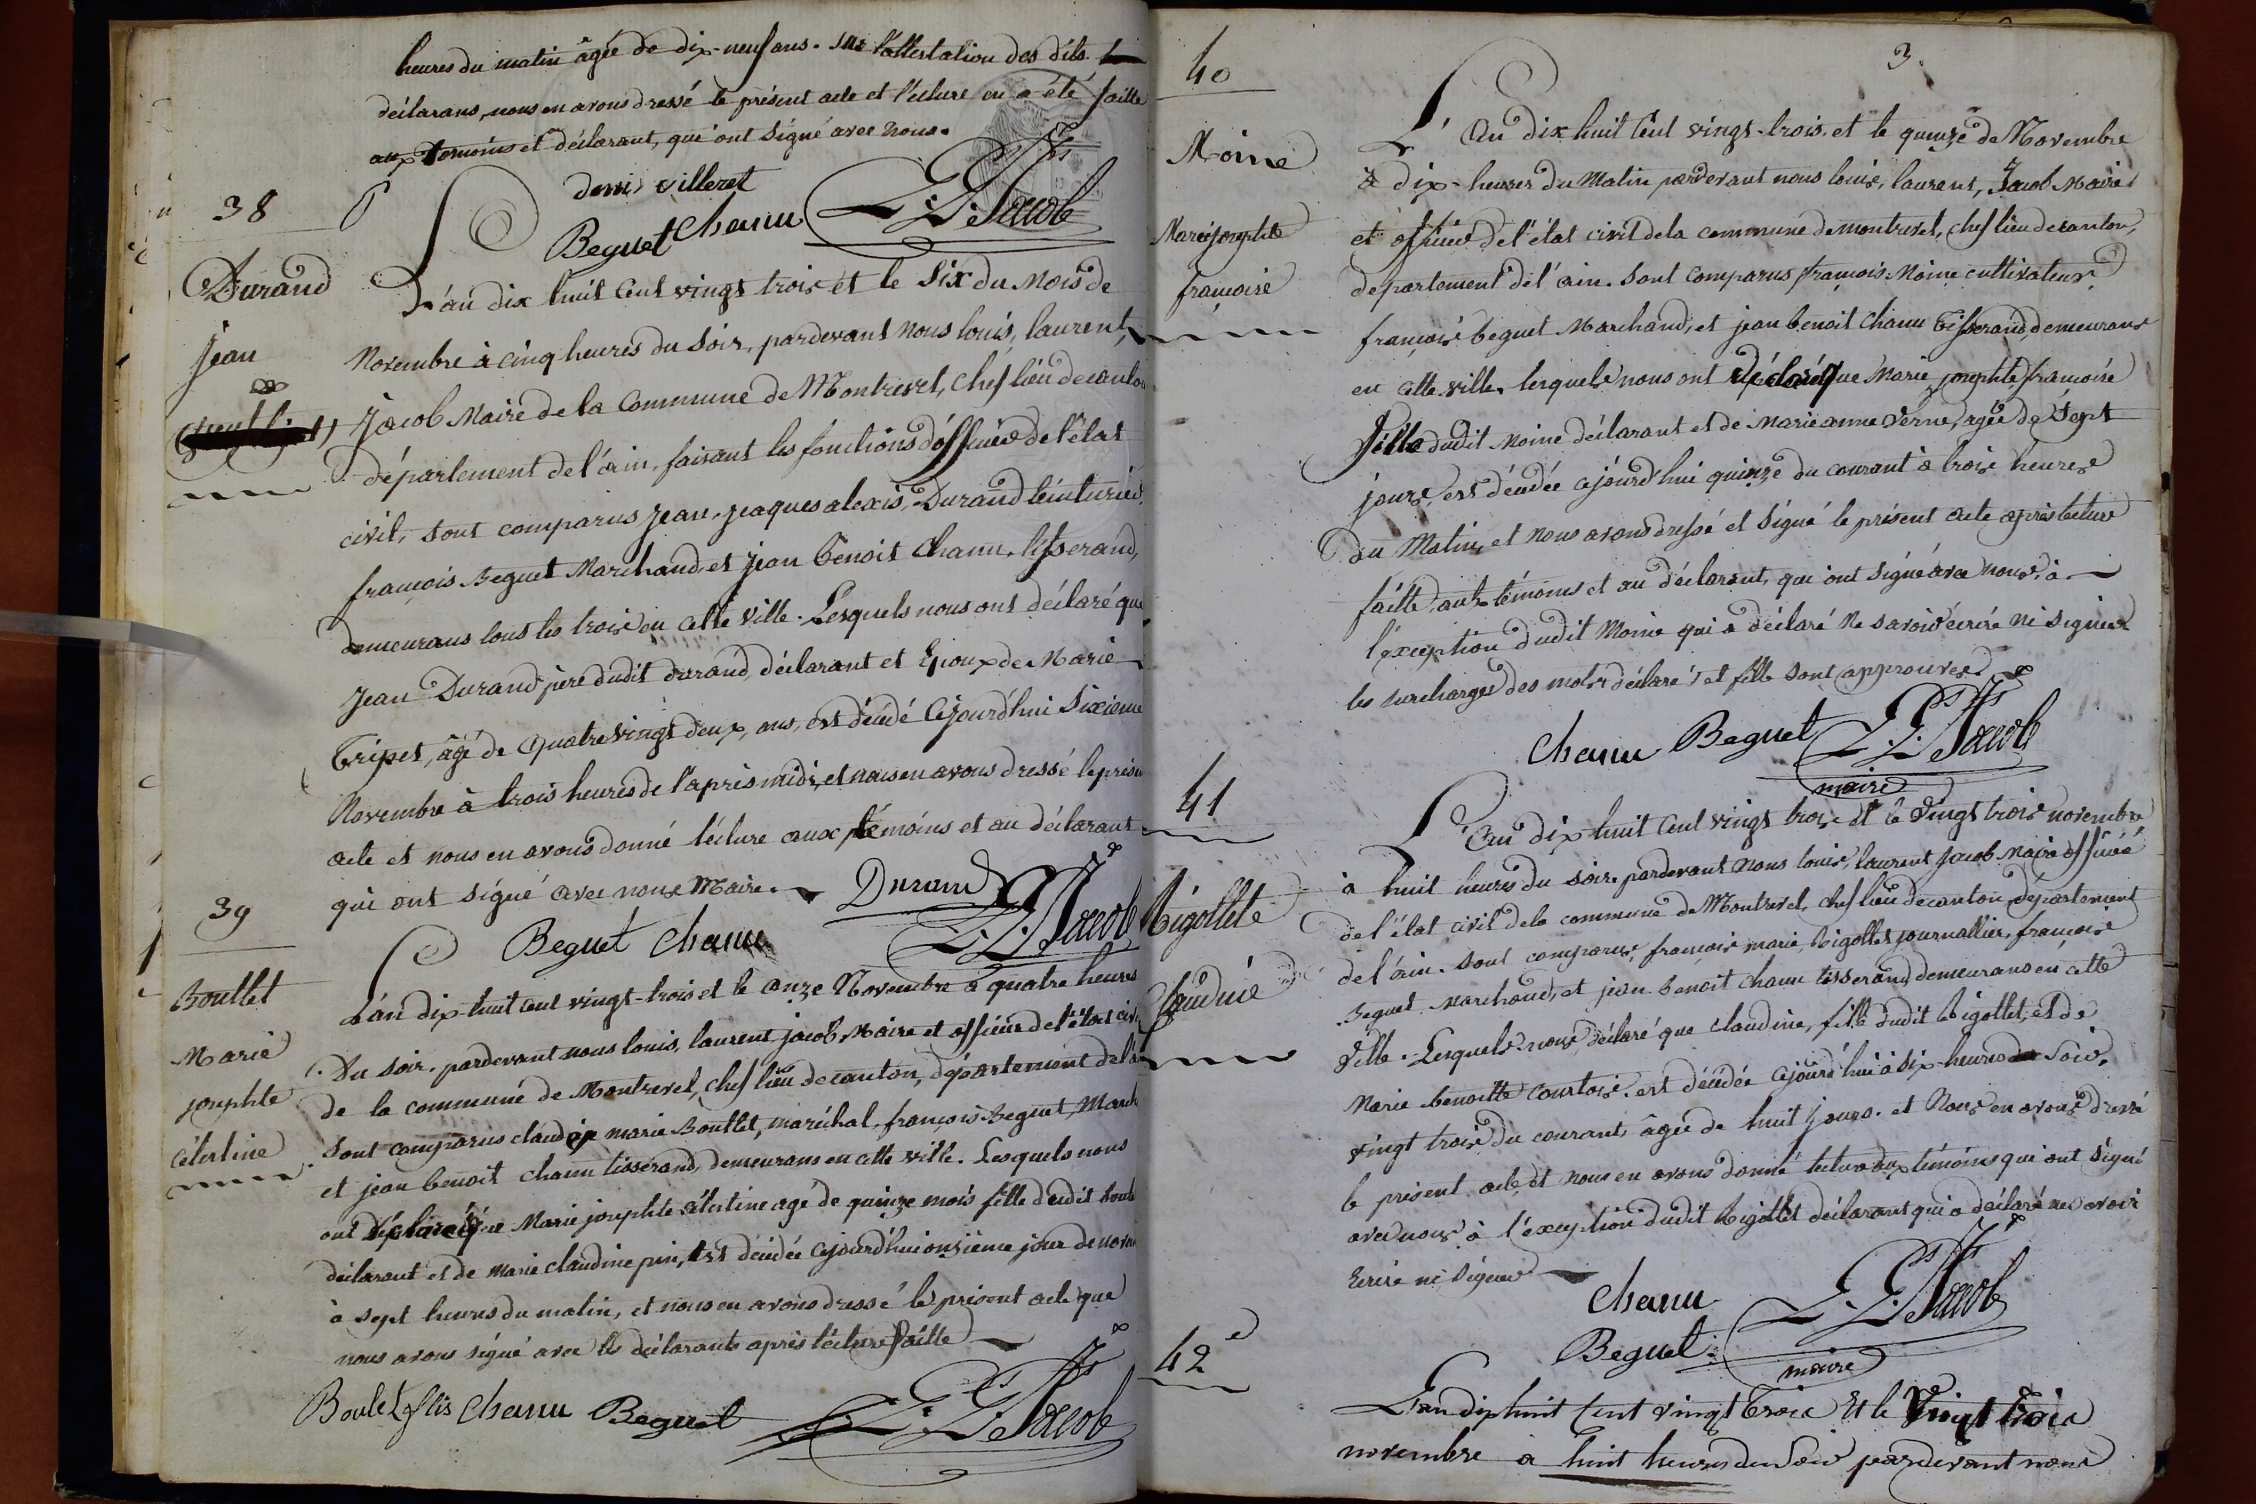 heures du matin âgée de dix-neuf ans. sur l'attestation des dits
déclarans, nous en avons dressé le présent acte et l'ecture en a été faitte
aux témoins et déclarant, qui ont signé avec nous.
denis villeret
Beguet Chanu L. L. Jacob
38
Durand
Jean
L'an dix huit cent vingt trois et le six du Mois de
Novembre à cinq heures du soir, pardevant nous louis, laurent,
Jacob Maire de la commune de Montrevel, chef lieu de canton
département de l'ain, faisant les fonctions d'officier de l'état
civil, sont comparus Jean, Jacques alexis, Durand teinturier,
françois Beguet Marchand, et Jean Benoit Chanu, tisserand,
demeurans tous les trois en cette ville. Lesquels nous ont déclaré que
Jean Durand père dudit durand, déclarant et Epoux de Marie
Tripet, âgé de quatre vingt deux, ans, est décédé cejourd'hui sixieme
Novembre à trois heures de l'après midi, et nous en avons dressé le présent
acte et nous en avons donné lécture aux témoins et au déclarant
qui ont signé avec nous Maire. Durand
Beguet Chanu L. L. Jacob
39
Boullet
Marie
josephte
célestine
L'an dix-huit cent vingt-trois et le onze Novembre à quatre heures
Du soir, pardevant nous louis, laurent, jacob Maire et officier de l'état civil
de la commune de Montrevel, chef lieu de canton, département de l'ain
sont comparus claude marie Boullet, maréchal, françois Beguet, March
et jean benoit chanu tisserand, demeurans en cette ville. Lesquels nous
ont déclaré que Marie josephte célestine agé de quinze mois fille dudit boulet
déclarant et de marie claudine pin, est décédée cejourd'hui onzième jour de novem
à sept heures du matin, et nous en avons dressé le présent acte que
nous avons signé avec les déclarants après lécture faitte
Boulet fils Chanu Beguet L. L. Jacob
3.
40
Moine
Marie josephte
françoise
L'an dix huit cent vingt-trois, et le quinze de Novembre
à dix-heures du Matin pardevant nous louis, laurent, Jacob Maire
et officier de l'état civil de la commune de montrevel, chef lieu de canton,
departement de l'ain. sont comparus françois Moine cultivateur,
françois beguet Marchand, et jean benoit Chanu tisserand, demeurans
en cette ville, lesquels nous ont déclaré que Marie josephte françoise
fille dudit Moine déclarant et de Marie anne Verne, agée de sept
jours, est décédée cejourd'hui quinze du courant à trois heures
du Matin, et nous avons dressé et signé le présent acte après lecture
faitte aux témoins et au déclarant, qui ont signé avec nous, à
l'exception dudit Moine qui a déclaré ne savoir écrire ni signer
les surcharges des mots déclaré, et fille sont approuvés
Chanu Beguet L. L. Jacob
maire
41
Rigollete
Claudine
L'an dix huit cent vingt trois et le vingt trois novembre
à huit heures du soir pardevant nous louis, laurent Jacob Maire officier
de l'état civil de la commune de Montrevel, chef lieu de canton, département
de l'ain. sont comparus, françois marie, Rigollet journallier, françois
Beguet Marchand, et jean benoit chanu tisserand, demeurans en cette
Ville. Lesquels nous déclaré que claudine, fille dudit Rigollet, et de
Marie benoitte courtois. est décédée cejourd'hui à six-heures du soir,
vingt trois du courant âgée de huit jours. et Nous en avons dressé
le présent acte et nous en avons donné lecture aux témoins qui ont signé
avec nous à l'exception dudit Rigollet déclarant qui a déclaré ne savoir
Ecrire ni signer
Chanu L. L. Jacob
Beguet maire
42e
L'an dix huit Cent vingt trois Et le Vingt trois
novembre à huit heures du Soir pardevant nous